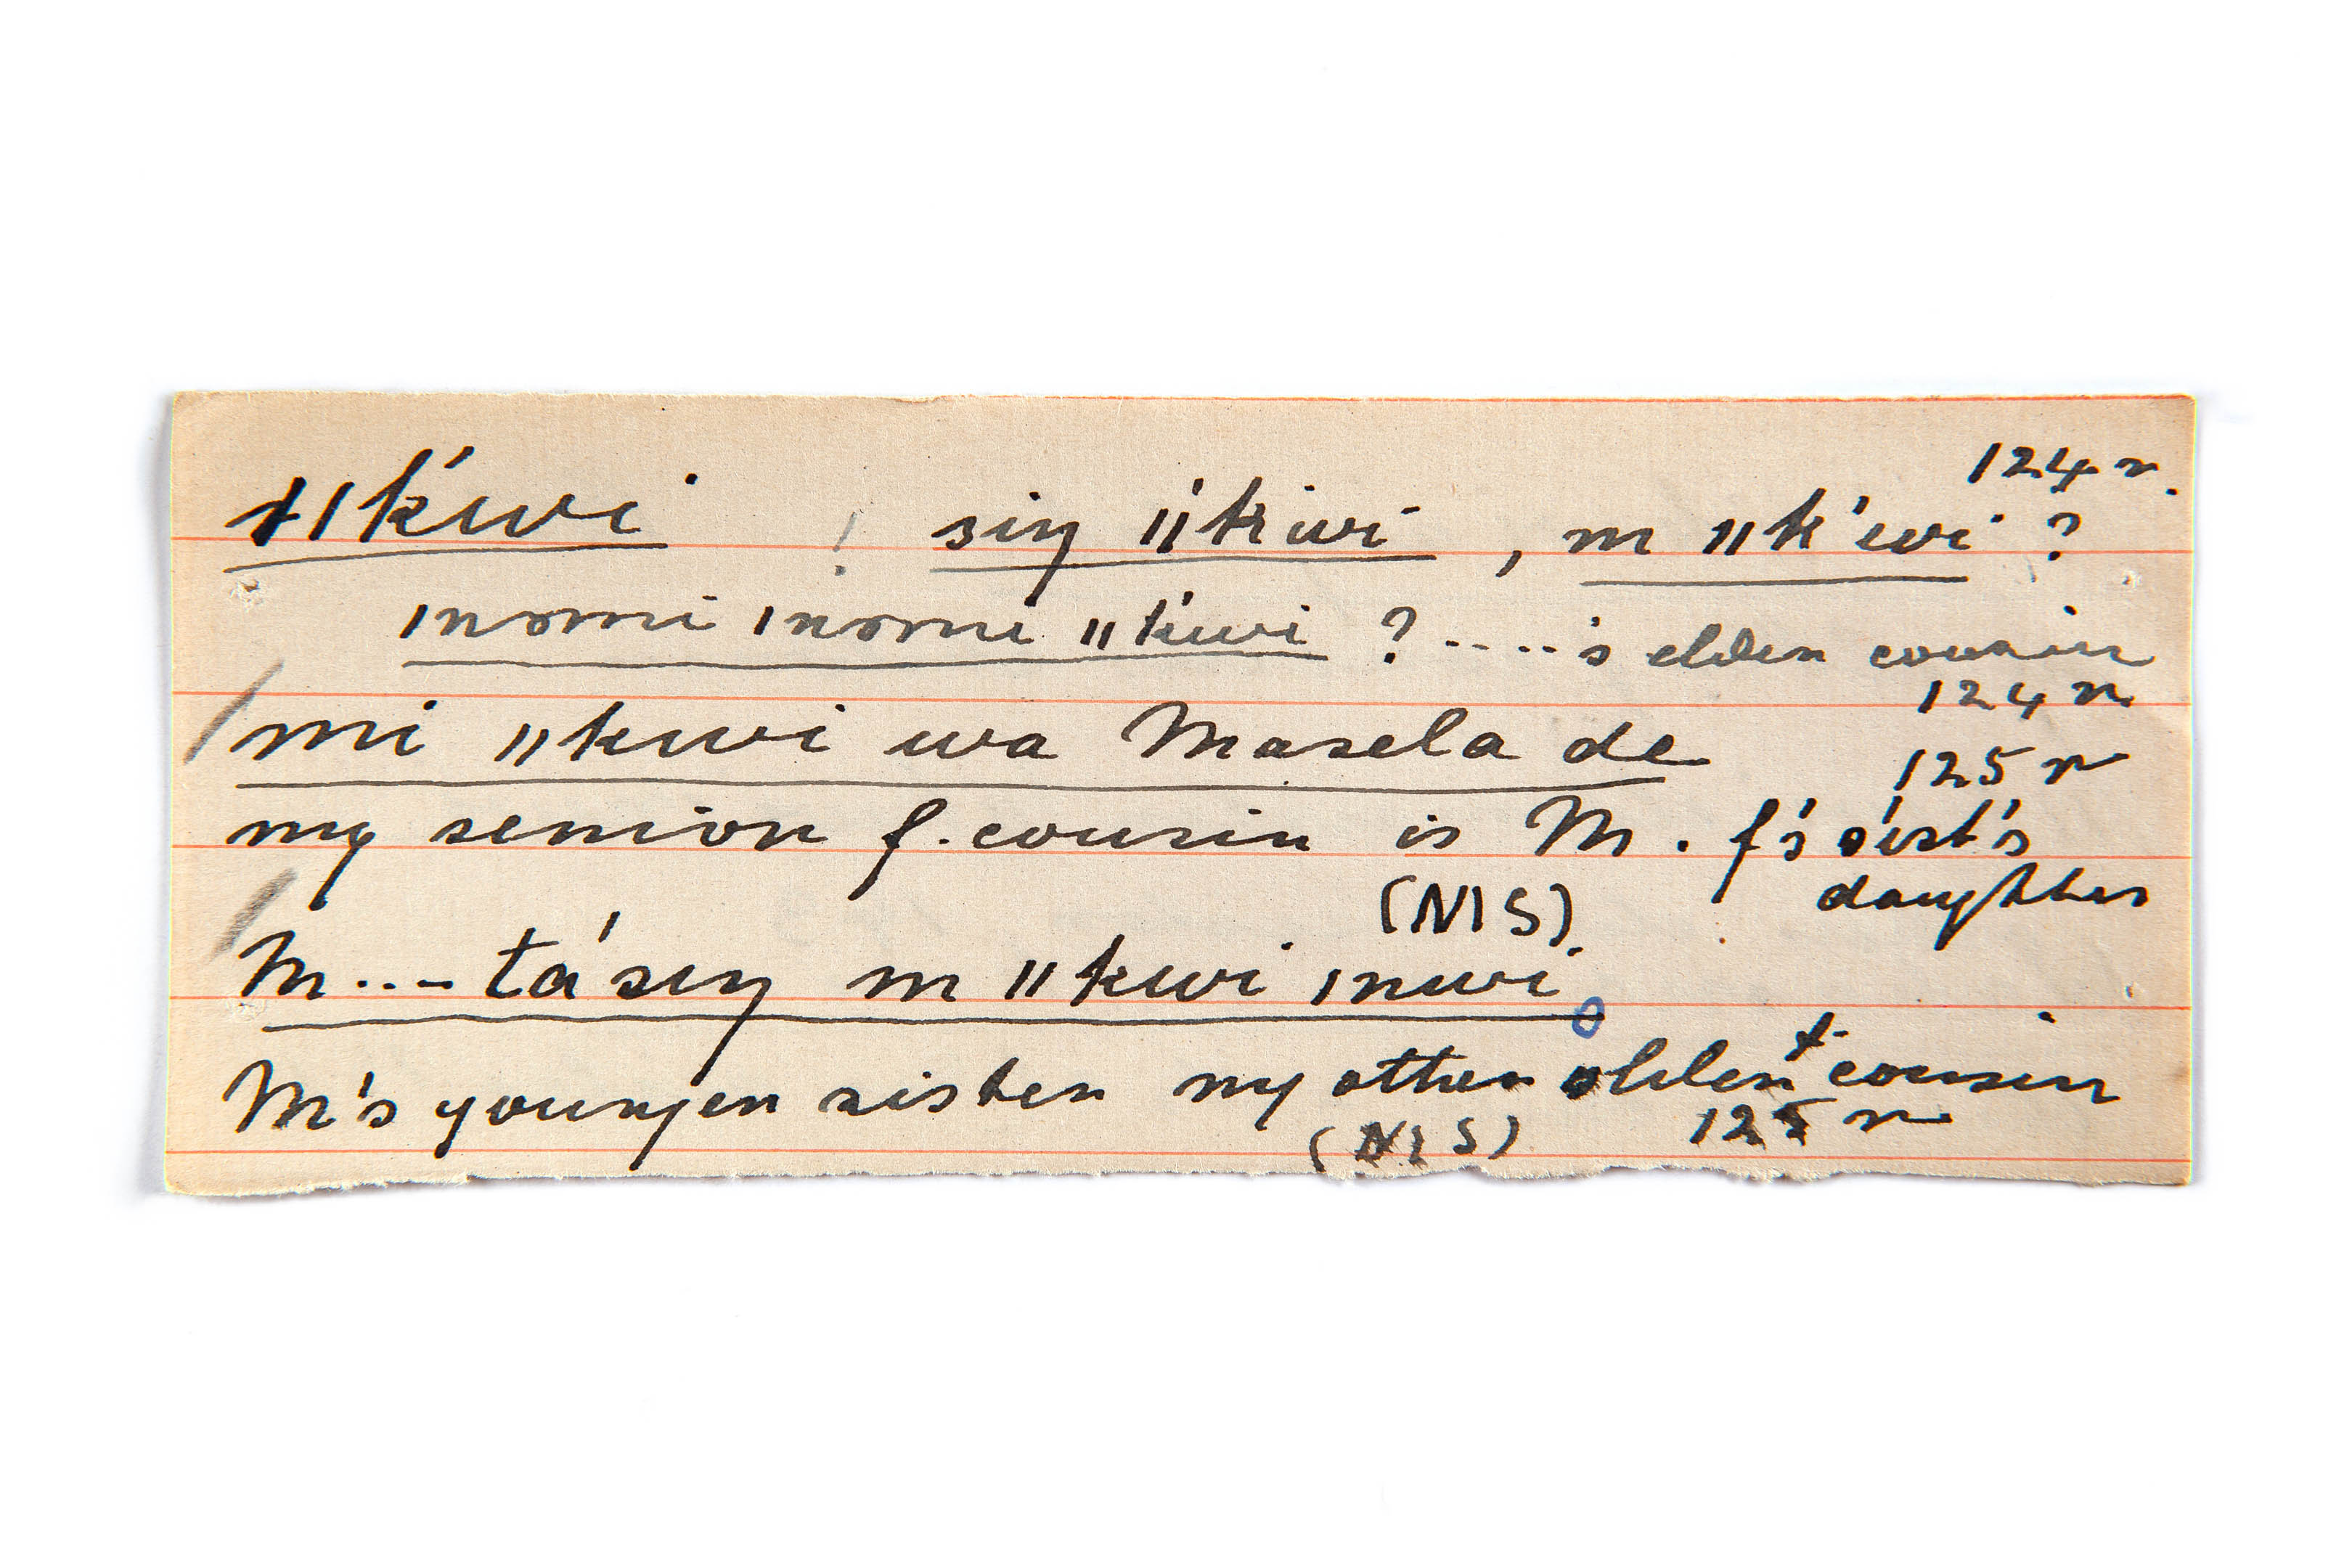 124 r.
ǁk'wi siŋ ǁk'wi , m ǁk'wi ?
ǀnɔmi ǀnɔmi ǁk'wi ? ....'s elder cousin
124 r.
mi ǁkwi wa Masela de 125 r
my senior f. cousin is M. f's sist's
(NIS). daughter
M...- ta'siŋ m ǁkwi ǀnwi
M's younger sister my other older f. cousin
(NIS) 125 r